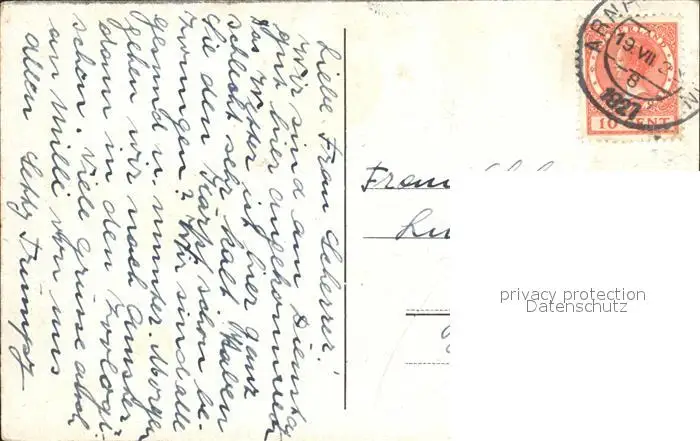 Liebe Frau Scherrer!
Wir sind am Dienstag
gut hier angekommen
das Wetter ist hier ganz
schlecht sehr kalt. Haben
Sie den schon be-
kommen? Wir sind alle
gesund u. munter. Morgen
gehen wir nach Amster-
dam in den Zoologi-
schen. Viele Grüsse
an Milli von uns
allen
Frau
ARNH
19.VII
8
1927
10 CENT
privacy protection
Datenschutz